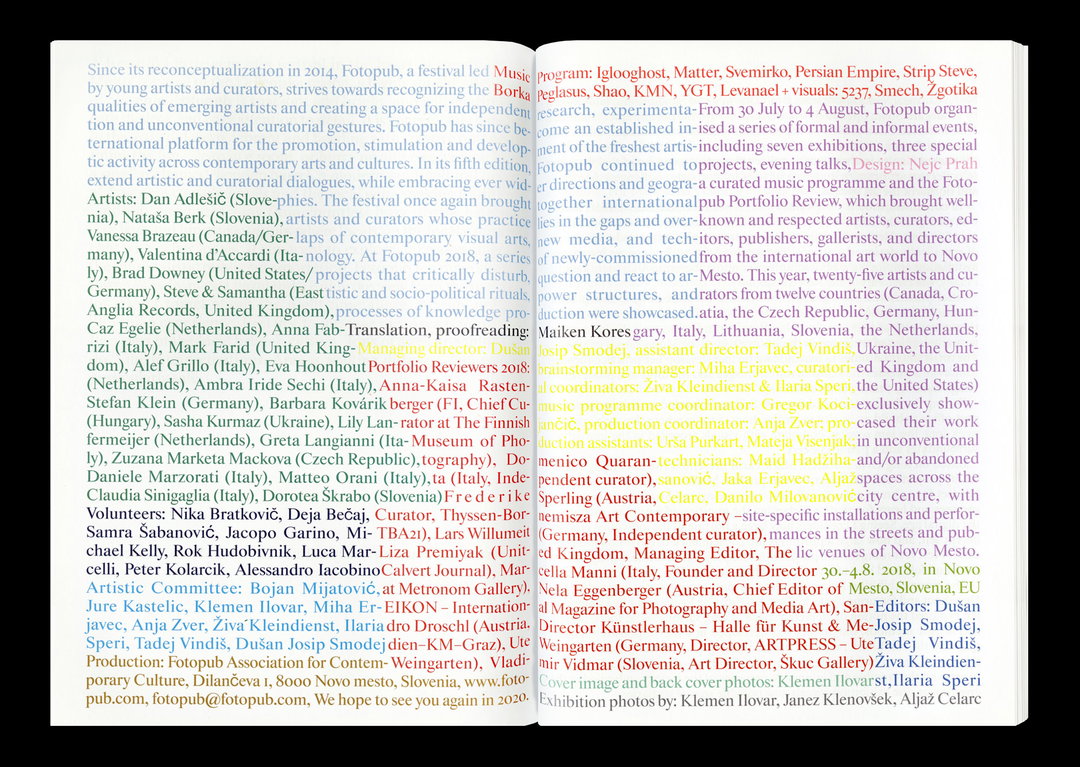 Since its reconceptualization in 2014, Fotopub, a festival led Music
by young artists and curators, strives towards recognizing the Borka
qualities of emerging artists and creating a space for independent
tion and unconventional curatorial gestures. Fotopub has since be-
ternational platform for the promotion, stimulation and develop-
tic activity across contemporary arts and cultures. In its fifth edition,
extend artistic and curatorial dialogues, while embracing ever wid-
Artists: Dan Adlešič (Slove-phies. The festival once again brought
nia), Nataša Berk (Slovenia), artists and curators whose practice
Vanessa Brazeau (Canada/Ger-laps of contemporary visual arts,
many), Valentina d'Accardi (Ita-nology. At Fotopub 2018, a series
ly), Brad Downey (United States/ projects that critically disturb,
Germany), Steve & Samantha (East tistic and socio-political rituals,
Anglia Records, United Kingdom), processes of knowledge pro-
Caz Egelie (Netherlands), Anna Fab-Translation, proofreading:
rizi (Italy), Mark Farid (United King-Managing director: Dušan
dom), Alef Grillo (Italy), Eva Hoonhout Portfolio Reviewers 2018:
(Netherlands), Ambra Iride Sechi (Italy), Anna-Kaisa Rasten-
Stefan Klein (Germany), Barbara Kovárik berger (FI, Chief Cu-
(Hungary), Sasha Kurmaz (Ukraine), Lily Lan-rator at The Finnish
fermeijer (Netherlands), Greta Langianni (Ita-Museum of Pho-
ly), Zuzana Marketa Mackova (Czech Republic), tography), Do-
Daniele Marzorati (Italy), Matteo Orani (Italy), ta (Italy, Inde-
Claudia Sinigaglia (Italy), Dorotea Škrabo (Slovenia) Frederike
Volunteers: Nika Bratkovič, Deja Bečaj, Curator, Thyssen-Bor-
Samra Šabanović, Jacopo Garino, Mi-TBA21), Lars Willumeit
chael Kelly, Rok Hudobivnik, Luca Mar-Liza Premiyak (Unit-
celli, Peter Kolarcik, Alessandro Iacobino Calvert Journal), Mar-
Artistic Committee: Bojan Mijatović, at Metronom Gallery),
Jure Kastelic, Klemen Ilovar, Miha Er-EIKON – Internation-
javec, Anja Zver, Živa Kleindienst, Ilaria dro Droschl (Austria,
Speri, Tadej Vindiš, Dušan Josip Smodej dien–KM–Graz), Ute
Production: Fotopub Association for Contem-Weingarten), Vladi-
porary Culture, Dilančeva 1, 8000 Novo mesto, Slovenia, www.foto-
pub.com, fotopub@fotopub.com, We hope to see you again in 2020.
Program: Iglooghost, Matter, Svemirko, Persian Empire, Strip Steve,
Peglasus, Shao, KMN, YGT, Levanael + visuals: 5237, Smech, Žgotika
research, experimenta-From 30 July to 4 August, Fotopub organ-
come an established in-ised a series of formal and informal events,
ment of the freshest artis-including seven exhibitions, three special
Fotopub continued to projects, evening talks, Design: Nejc Prah
er directions and geogra-a curated music programme and the Foto-
together international pub Portfolio Review, which brought well-
lies in the gaps and over-known and respected artists, curators, ed-
new media, and tech-itors, publishers, gallerists, and directors
of newly-commissioned from the international art world to Novo
question and react to ar-Mesto. This year, twenty-five artists and cu-
power structures, and rators from twelve countries (Canada, Cro-
duction were showcased. atia, the Czech Republic, Germany, Hun-
Maiken Kores gary, Italy, Lithuania, Slovenia, the Netherlands,
Josip Smodej, assistant director: Tadej Vindiš, Ukraine, the Unit-
brainstorming manager: Miha Erjavec, curatori-ed Kingdom and
al coordinators: Živa Kleindienst & Ilaria Speri, the United States)
music programme coordinator: Gregor Koci-exclusively show-
jančič, production coordinator: Anja Zver; pro-cased their work
duction assistants: Urša Purkart, Mateja Visenjak; in unconventional
menico Quaran-technicians: Maid Hadžiha-and/or abandoned
pendent curator), sanović, Jaka Erjavec, Aljaž spaces across the
Sperling (Austria, Celarc, Danilo Milovanović city centre, with
nemisza Art Contemporary –site-specific installations and perfor-
(Germany, Independent curator), mances in the streets and pub-
ed Kingdom, Managing Editor, The lic venues of Novo Mesto.
cella Manni (Italy, Founder and Director 30.–4.8. 2018, in Novo
Nela Eggenberger (Austria, Chief Editor of Mesto, Slovenia, EU
al Magazine for Photography and Media Art), San-Editors: Dušan
Director Künstlerhaus – Halle für Kunst & Me-Josip Smodej,
Weingarten (Germany, Director, ARTPRESS – Ute Tadej Vindiš,
mir Vidmar (Slovenia, Art Director, Škuc Gallery) Živa Kleindien-
Cover image and back cover photos: Klemen Ilovar st, Ilaria Speri
Exhibition photos by: Klemen Ilovar, Janez Klenovšek, Aljaž Celarc